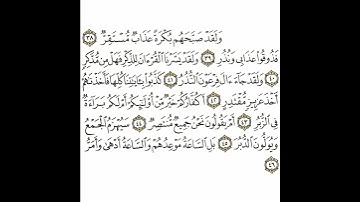 وَلَقَدْ صَبَّحَهُم بُكْرَةً عَذَابٌ مُّسْتَقِرٌّ ٣٨
فَذُوقُوا۟ عَذَابِى وَنُذُرِ ٣٩ وَلَقَدْ يَسَّرْنَا ٱلْقُرْءَانَ لِلذِّكْرِ فَهَلْ مِن مُّدَّكِرٍ
٤٠ وَلَقَدْ جَآءَ ءَالَ فِرْعَوْنَ ٱلنُّذُرُ ٤١ كَذَّبُوا۟ بِـَٔايَـٰتِنَا كُلِّهَا فَأَخَذْنَـٰهُمْ
أَخْذَ عَزِيزٍ مُّقْتَدِرٍ ٤٢ أَكُفَّارُكُمْ خَيْرٌ مِّنْ أُو۟لَـٰٓئِكُمْ أَمْ لَكُم بَرَآءَةٌ
فِى ٱلزُّبُرِ ٤٣ أَمْ يَقُولُونَ نَحْنُ جَمِيعٌ مُّنتَصِرٌ ٤٤ سَيُهْزَمُ ٱلْجَمْعُ
وَيُوَلُّونَ ٱلدُّبُرَ ٤٥ بَلِ ٱلسَّاعَةُ مَوْعِدُهُمْ وَٱلسَّاعَةُ أَدْهَىٰ وَأَمَرُّ
٤٦